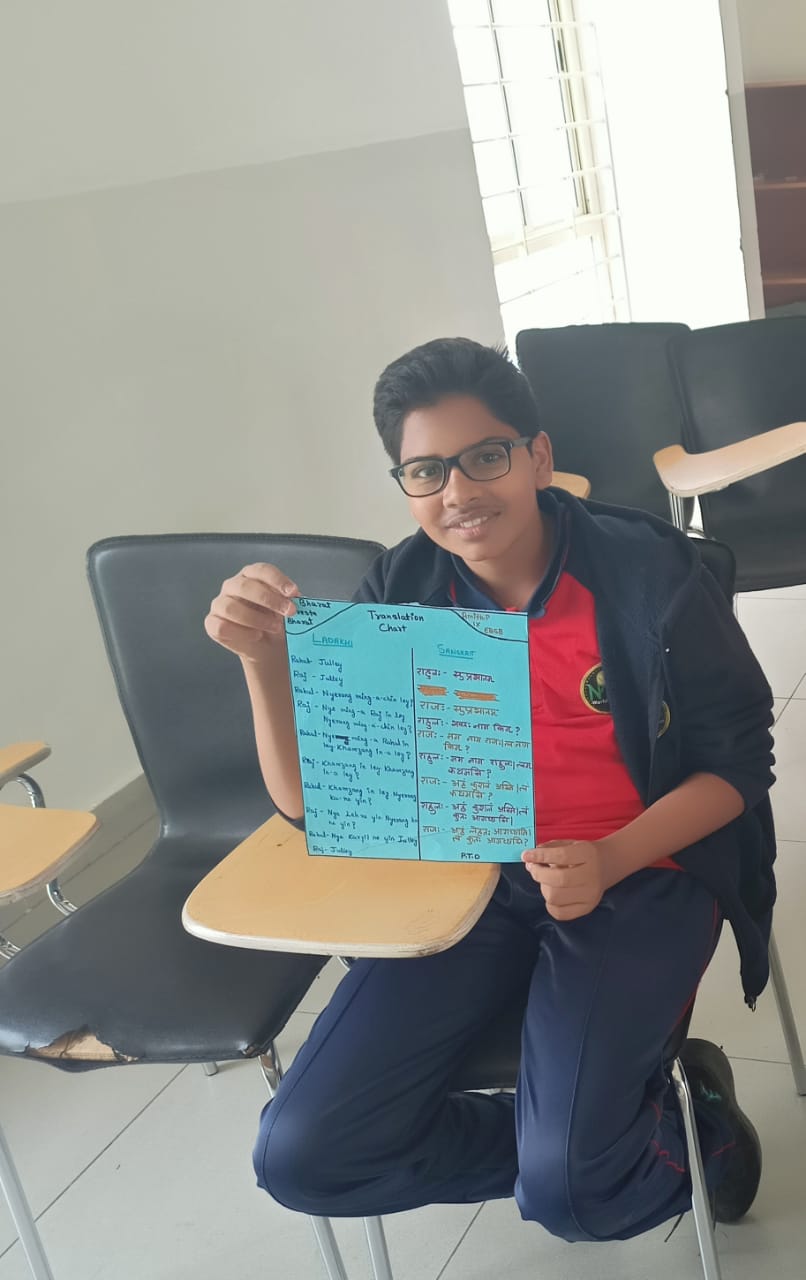 Bharat
Bharat
Translation
Chart
Amith P
IX
EBSB
LADAKHI
Rahul- Julley
Raj - Julley
Rahul- Nyerang ming-a-chin ley?
Raj - Nye ming-a Raj in ley
Nyerang ming-a-chin ley?
Rahul- Nye ming-a Rahul in
ley Khamzang in-a ley?
Raj- Khamzang in ley Khamzang
in-a ley?
Rahul- Khamzang in ley Nyerang
ka-ne yin?
Raj- Nga Leh ne yin Nyerang ka
ne yin?
Rahul- Nga Kargil ne yin Julley
Raj- Julley
SANSKRIT
राहुलः - सुप्रभातम्
राजः - सुप्रभातम्
राहुलः - नाम किम्?
राजः - मम नाम राजः।
किम्?
राहुलः - मम नाम राहुलः।त्वम्
कथमसि?
राजः - अहं कुशलं अस्मि।त्वं
कथमसि?
राहुलः - अहं कुशलं अस्मि।त्वं
कुतः आगच्छसि।
राजः - अहं लेहतः आगच्छामि।
त्वं कुतः आगच्छसि?
P.T.O